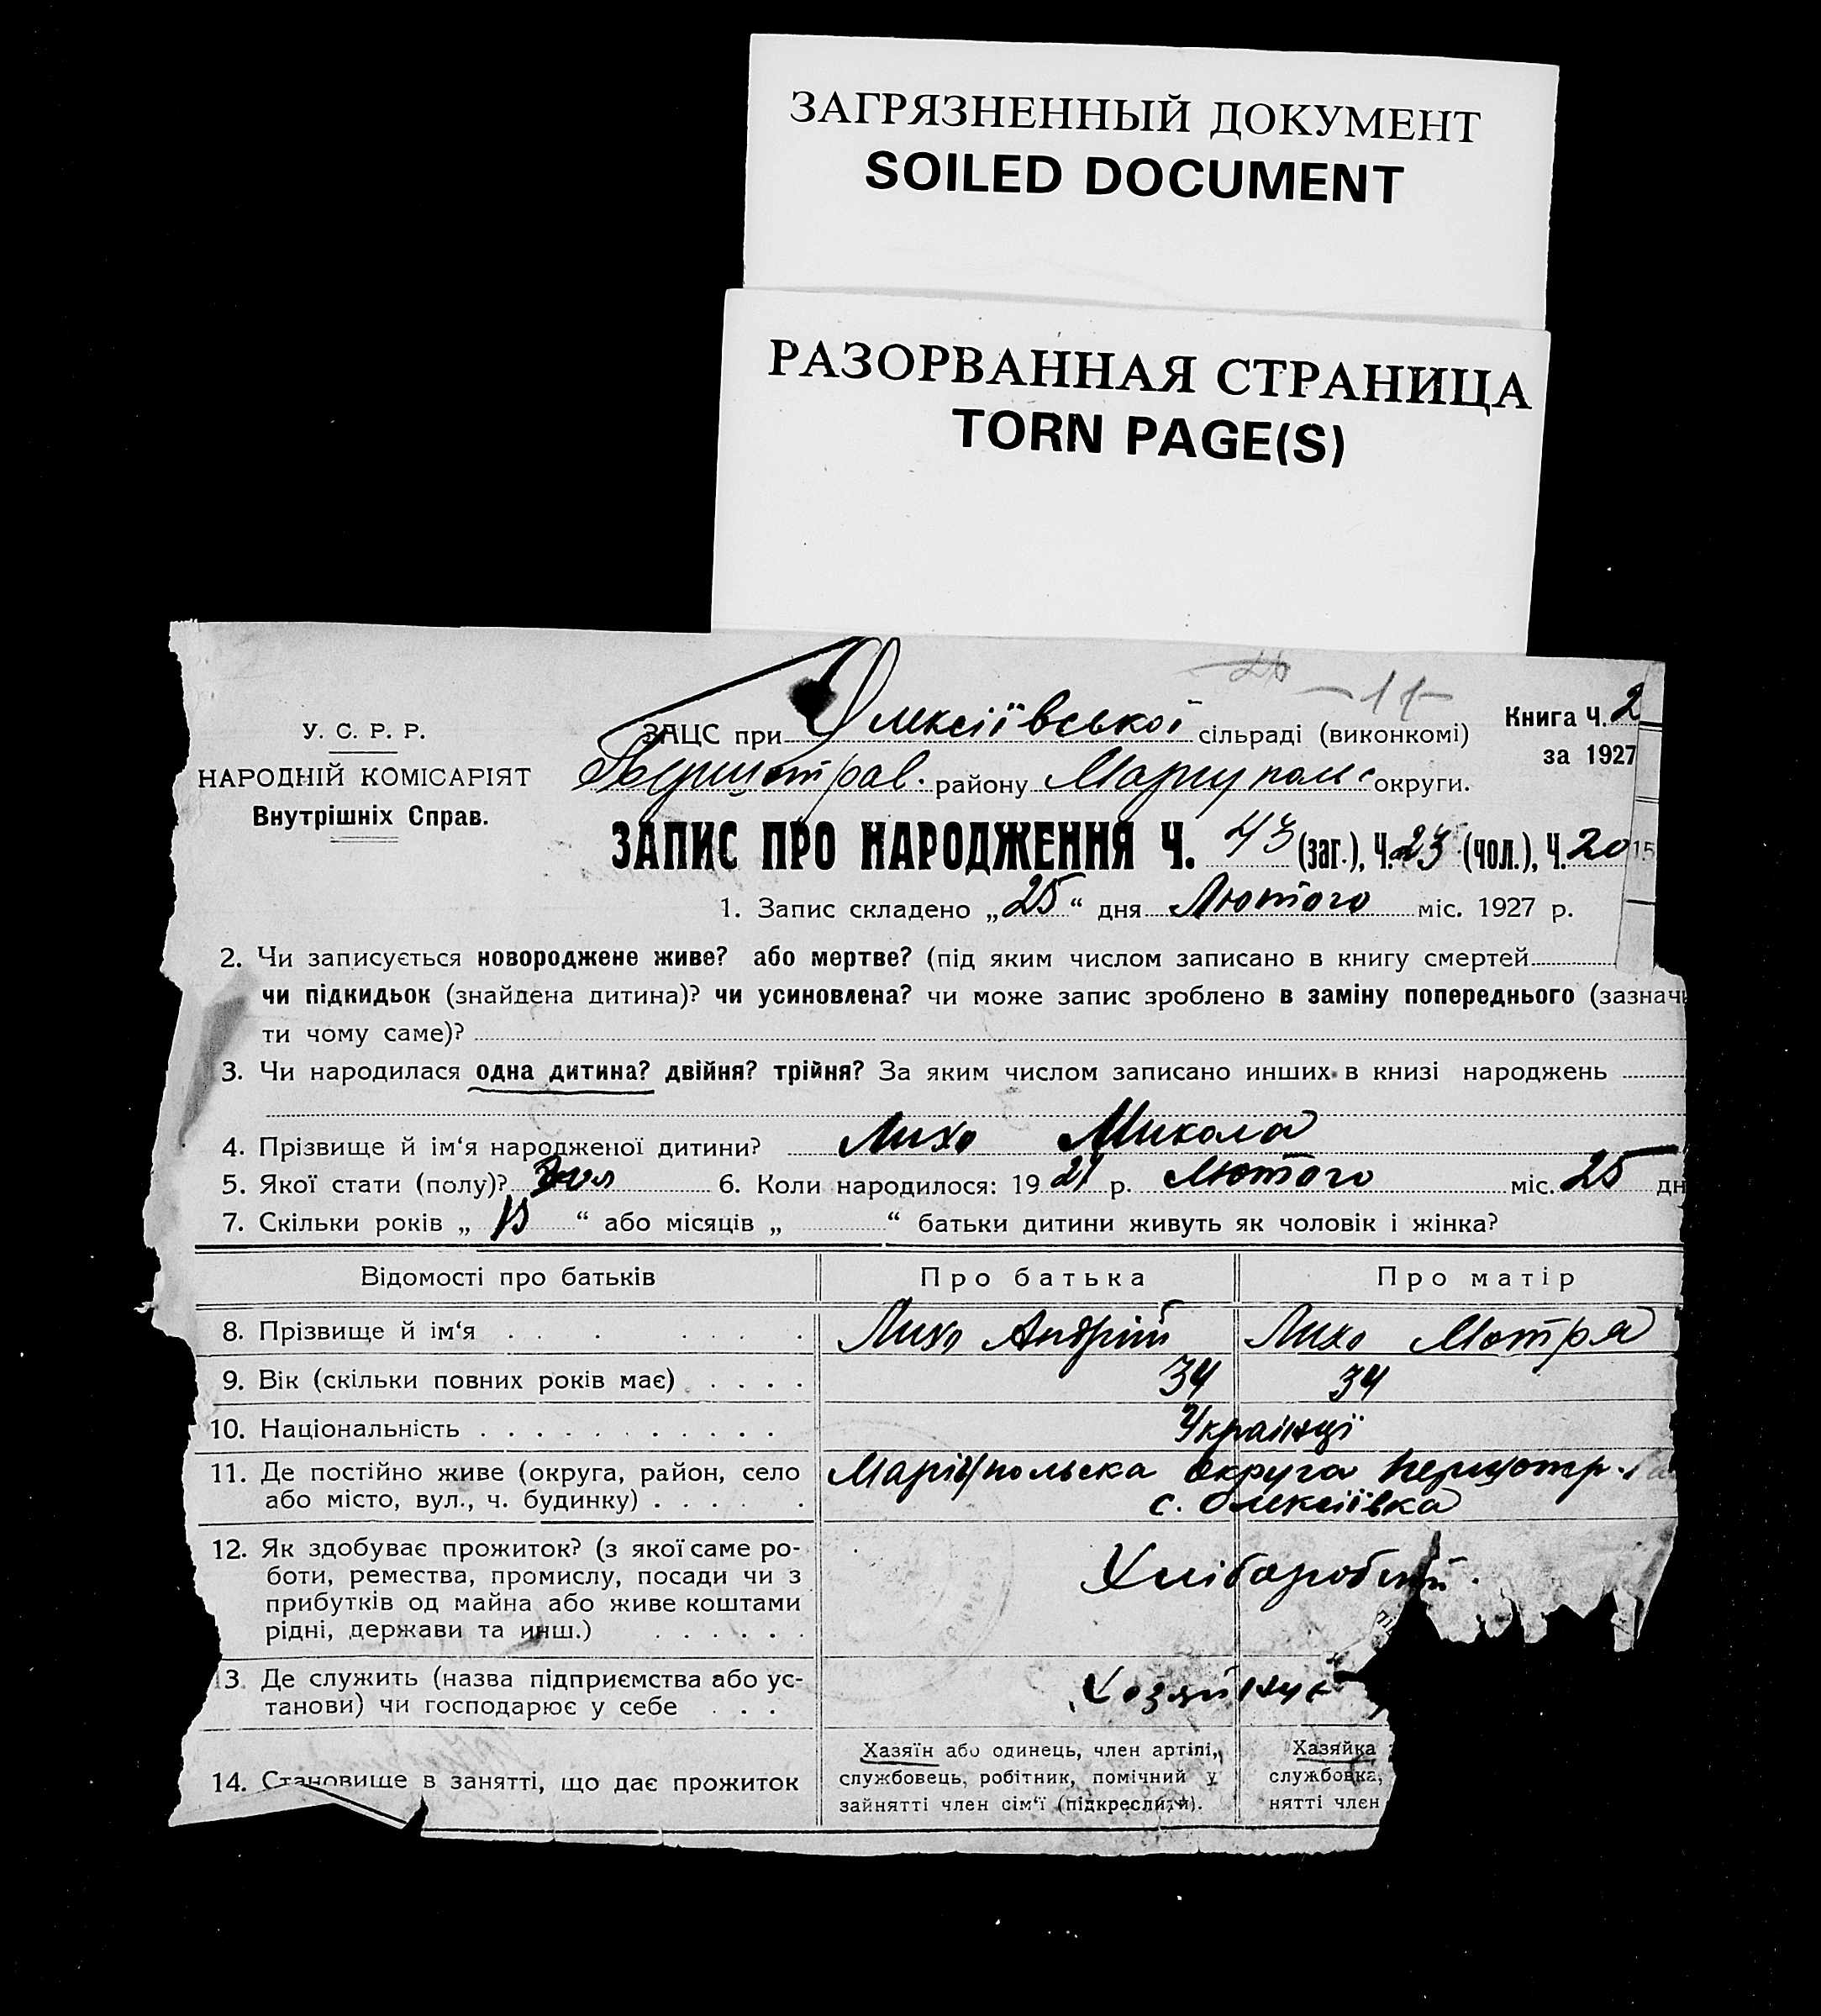 ЗАГРЯЗНЕННЫЙ ДОКУМЕНТ
SOILED DOCUMENT
РАЗОРВАННАЯ СТРАНИЦА
TORN PAGE(S)
У. С. Р. Р.
НАРОДНІЙ КОМІСАРІЯТ
Внутрішніх Справ.
ЗАЦС при Олексіївської сільраді (виконкомі)
району Маріупольс округи.
Книга Ч. 2
за 1927
ЗАПИС ПРО НАРОДЖЕННЯ Ч. 43 (заг.), Ч. 23 (чол.), Ч. 20
1. Запис складено „25“ дня Лютого міс. 1927 р.
2. Чи записується новороджене живе? або мертве? (під яким числом записано в книгу смертей
чи підкидьок (знайдена дитина)? чи усиновлена? чи може запис зроблено в заміну попереднього (зазначи
ти чому саме)?
3. Чи народилася одна дитина? двійня? трійня? За яким числом записано инших в книзі народжень
4. Прізвище й ім‘я народженої дитини? Лихо Микола
5. Якої стати (полу)? чол 6. Коли народилося: 1927 р. Лютого міс. 25 дн
7. Скільки років „ “ або місяців „ “ батьки дитини живуть як чоловік і жінка?
Відомості про батьків Про батька Про матір
8. Прізвище й ім‘я . . . . . . . Лихо Андрій Лихо Мотря
9. Вік (скільки повних років має) . . . . 34 34
10. Національність . . . . . . . . . . . Українці
11. Де постійно живе (округа, район, село Маріупольська округа Першотр.
або місто, вул., ч. будинку) . . . . . с. Олексіївка
12. Як здобуває прожиток? (з якої саме ро-
боти, ремества, промислу, посади чи з
прибутків од майна або живе коштами
рідні, держави та инш.) . . . . . .
13. Де служить (назва підприємства або ус-
танови) чи господарює у себе . . .
14. Становище в занятті, що дає прожиток
Хазяїн або одинець, член артілі,
службовець, робітник, помічний у
зайнятті член сім‘ї (підкреслити).
Хазяйка
службовка,
нятті член